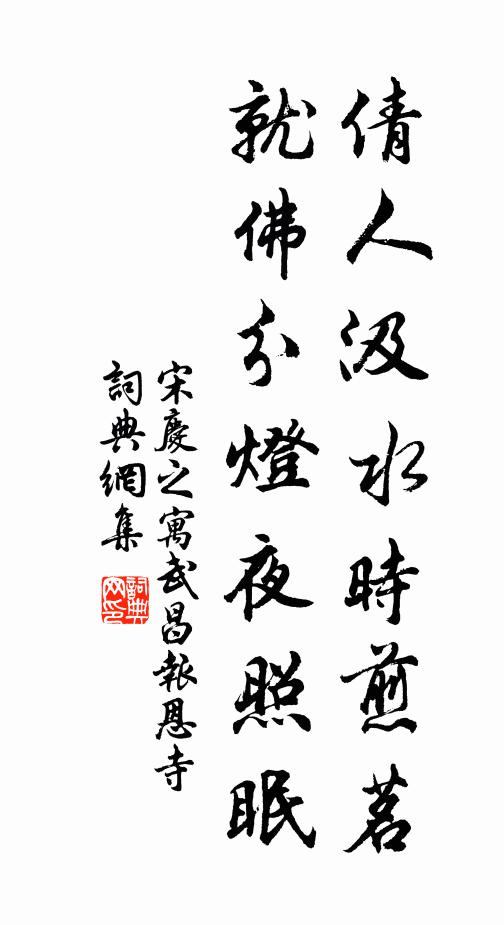 倩人汲水時煎茗
就佛分燈夜照眠
宋慶之寓武昌報恩寺
詞典網集
詞典網印